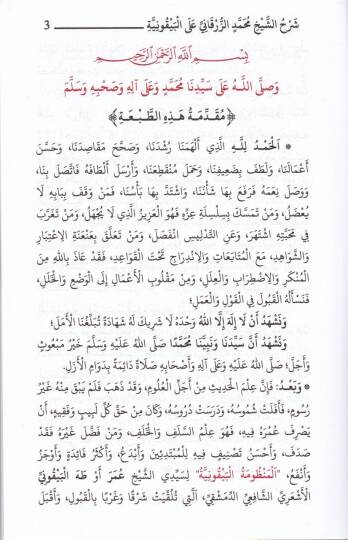 شَرْحُ الشَّيْخِ مُحَمَّدٍ الزُّرْقَانِيِّ عَلَى الْبَيْقُونِيَّةِ 3
بِسْمِ اللهِ الرَّحْمَنِ الرَّحِيمِ
وَصَلَّى اللهُ عَلَى سَيِّدِنَا مُحَمَّدٍ وَعَلَى آلِهِ وَصَحْبِهِ وَسَلَّمَ
﴿مُقَدِّمَةُ هَذِهِ الطَّبْعَةِ﴾
* الْحَمْدُ لِلَّهِ الَّذِي أَلْهَمَنَا رُشْدَنَا، وَصَحَّحَ مَقَاصِدَنَا، وَحَسَّنَ
أَعْمَالَنَا، وَلَطَفَ بِضَعِيفِنَا، وَحَمَلَ مُنْقَطِعَنَا، وَأَرْسَلَ أَلْطَافَهُ فَاتَّصَلَ بِنَا،
وَوَصَلَ نِعَمَهُ فَرَفَعَ بِهَا شَأْنَنَا، وَاشْتَدَّ بِهَا بَأْسُنَا، فَمَنْ وَقَفَ بِبَابِهِ لَا
يُعْضَلُ، وَمَنْ تَمَسَّكَ بِسِلْسِلَةِ عِزِّهِ فَهُوَ الْعَزِيزُ الَّذِي لَا يُجْهَلُ، وَمَنْ تَغَرَّبَ
فِي مَحَبَّتِهِ اشْتَهَرَ، وَعَنِ التَّدْلِيسِ انْفَصَلَ، وَمَنْ تَعَلَّقَ بِعَنْعَنَةِ الِاعْتِبَارِ
وَالشَّوَاهِدِ، مَعَ الْمُتَابَعَاتِ وَالِانْدِرَاجِ تَحْتَ الْقَوَاعِدِ، فَقَدْ عَاذَ بِاللهِ مِنَ
الْمُنْكَرِ وَالِاضْطِرَابِ وَالْعِلَلِ، وَمِنْ مَقْلُوبِ الْأَعْمَالِ إِلَى الْوَضْعِ وَالْخَلَلِ،
فَنَسْأَلُهُ الْقَبُولَ فِي الْقَوْلِ وَالْعَمَلِ؛
وَنَشْهَدُ أَنْ لَا إِلَهَ إِلَّا اللهُ وَحْدَهُ لَا شَرِيكَ لَهُ شَهَادَةً تُبَلِّغُنَا الْأَمَلَ؛
وَنَشْهَدُ أَنَّ سَيِّدَنَا وَنَبِيَّنَا مُحَمَّدًا صَلَّى اللهُ عَلَيْهِ وَسَلَّمَ خَيْرُ مَبْعُوثٍ
وَأَجَلُّ؛ صَلَّى اللهُ عَلَيْهِ وَعَلَى آلِهِ وَأَصْحَابِهِ صَلَاةً دَائِمَةً بِدَوَامِ الْأَزَلِ.
* وَبَعْدُ: فَإِنَّ عِلْمَ الْحَدِيثِ مِنْ أَجَلِّ الْعُلُومِ، وَقَدْ ذَهَبَ فَلَمْ يَبْقَ مِنْهُ غَيْرُ
رُسُومٍ، فَأَفَلَتْ شُمُوسُهُ، وَدَرَسَتْ دُرُوسُهُ، وَكَانَ مِنْ حَقِّ كُلِّ لَبِيبٍ وَفَقِيهٍ، أَنْ
يَصْرِفَ عُمُرَهُ فِيهِ، فَهُوَ عِلْمُ السَّلَفِ وَالْخَلَفِ، وَمَنْ فَضَّلَ غَيْرَهُ فَقَدْ
صَدَفَ، وَأَحْسَنُ تَصْنِيفٍ فِيهِ لِلْمُبْتَدِئِينَ وَأَبْدَعُ، وَأَكْثَرُ فَائِدَةٍ وَأَوْجَزُ
وَأَنْفَعُ، "الْمَنْظُومَةُ الْبَيْقُونِيَّةُ" لِسَيِّدِي الشَّيْخِ عُمَرَ أَوْ طَهَ الْبَيْقُونِيِّ
الْأَشْعَرِيِّ الشَّافِعِيِّ الدِّمَشْقِيِّ، الَّتِي تُلُقِّيَتْ شَرْقًا وَغَرْبًا بِالْقَبُولِ، وَأَقْبَلَ